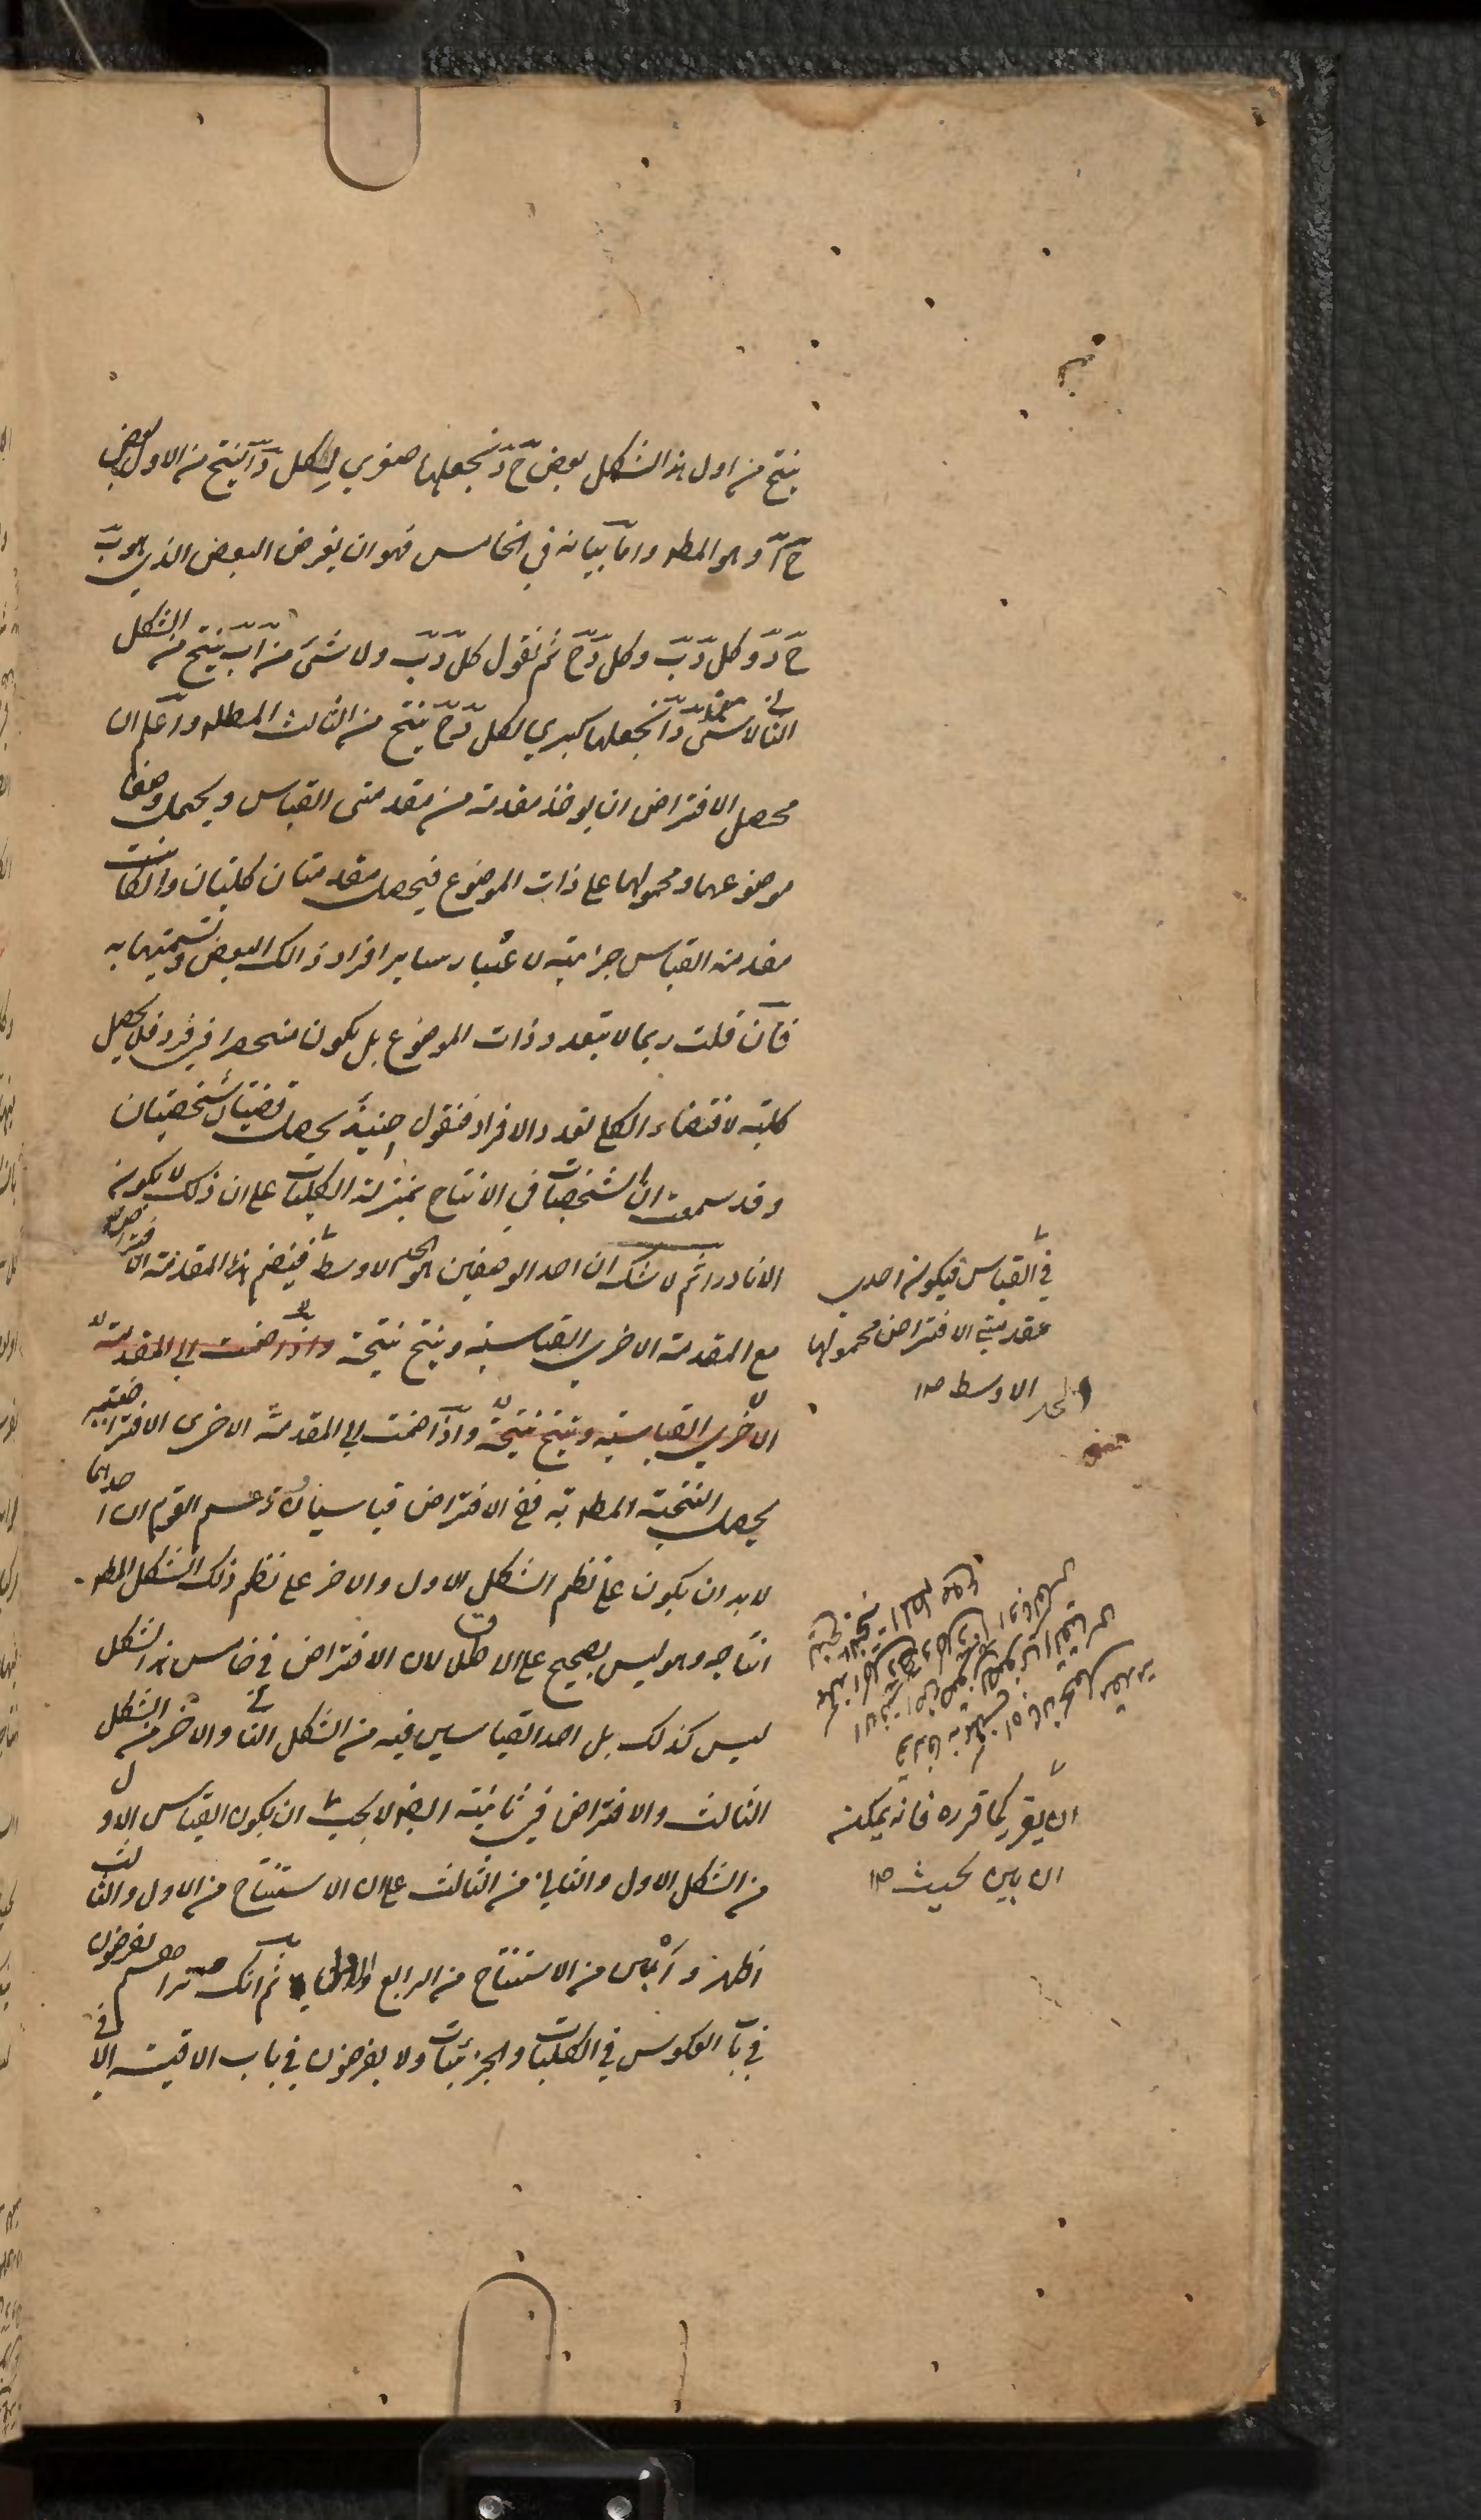 ينتج من اول هذا الشكل بعض ج د نجعلها صغرى لكل د ا ينتج من الاول بعض
ج ا وهو المط واما بيانه في الخامس فهو ان يفرض البعض الذي هو ب
ج د وكل د ب وكل د ج ثم نقول كل د ب ولا شئ من ا ب ينتج من الشكل
الثانى لا شئ من د ا نجعلها كبرى لكل د ج ينتج من الثالث المطلوب واعلم ان
محصل الافتراض ان يوخذ مقدمة من مقدمتى القياس ويحمل وصفا
موضوعها ومحمولها على ذات الموضوع فيحصل مقدمتان كليتان وان كانت
مقدمة القياس جزئية لاعتبار ساير افراد ذالك البعض وتسميتها به
فان قلت ربما لا يتعدد ذات الموضوع بل يكون منحصرا في فرد فلا يحصل
كلية لاقتضاء الكل تعدد الافراد فنقول حينئذ يحصل قضيتان شخصيتان
وقد سمعت ان الشخصيات في الانتاج بمنزلة الكليات على ان ذلك لا يكون
الا نادرا ثم لا شك ان احد الوصفين هو الحد الاوسط فينضم هذه المقدمة الافتراضية
مع المقدمة الاخرى القياسية وينتج نتيجة واذا ضمت الى المقدمة
الاخرى القياسية وينتج نتيجة واذا ضمت الى المقدمة الاخرى الافتراضية
يحصل النتيجة المطوبة ففي الافتراض قياسان وزعم القوم ان احدهما
لا بد ان يكون على نظم الشكل الاول والاخر على نظم ذلك الشكل المط
انتاجه وهو ليس بصحيح على الاطلاق لان الافتراض في خامس هذا الشكل
ليس كذلك بل احد القياسين فيه من الشكل الثانى والاخر من الشكل
الثالث والافتراض في ثانيته ايضا لا يجب ان يكون القياس الاول
من الشكل الاول والثانى من الثالث على ان الاستنتاج من الاول والثالث
اظهر و من الاستنتاج من الرابع والاول ثم انك تراهم يفرضون
في باب العكوس في الكليات والجزئيات ولا يفرضون في باب الاقيسة الا في
في القياس فيكون احدى
مقدمتى الافتراض محمولها
الحد الاوسط صح
ان يقر كما قرره فانه يمكن
ان يبين بحيث صح